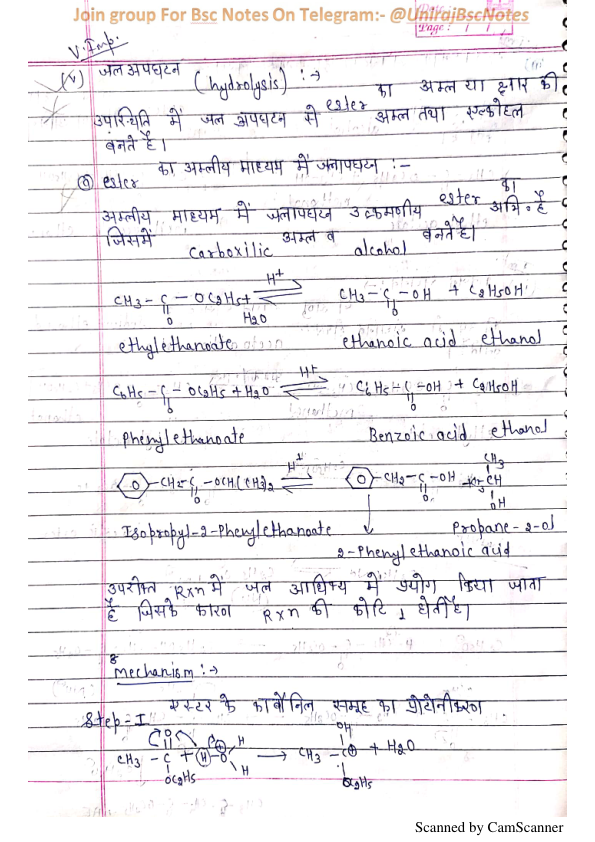 Join group For Bsc Notes On Telegram:- @UnirajBscNotes
Page:
V. Imp.
(V) जल अपघटन (hydrolysis) :→
ester का अम्ल या क्षार की
उपस्थिति में जल अपघटन से अम्ल तथा एल्कोहल
बनते हैं।
ester का अम्लीय माध्यम में जलापघटन :-
अम्लीय माध्यम में जलापघटन उत्क्रमणीय ester का अभि० है
जिसमें carboxilic अम्ल व alcohol बनते हैं।
CH3 - C - OC2H5 + ⇌ CH3 - C - OH + C2H5OH
H+
O H2O O
ethylethanoate ethanoic acid ethanol
H+
C6H5 - C - OC2H5 + H2O ⇌ C6H5 - C - OH + C2H5OH
O O
Phenylethanoate Benzoic acid ethanol
CH3
H+
CH2 - C - OCH(CH3)2 ⇌ CH2 - C - OH + CH
O O OH
Isopropyl-2-Phenylethanoate Propane-2-ol
2-Phenylethanoic acid
उपरोक्त Rxn में जल आधिक्य में प्रयोग किया जाता
है जिसके कारण Rxn की कोटि 1 होती है।
Mechanism :→
एस्टर के कार्बोनिल समूह का प्रोटोनीकरण
Step-I
OH
O H
CH3 - C + H - O → CH3 - C⊕ + H2O
OC2H5 H OC2H5
Scanned by CamScanner